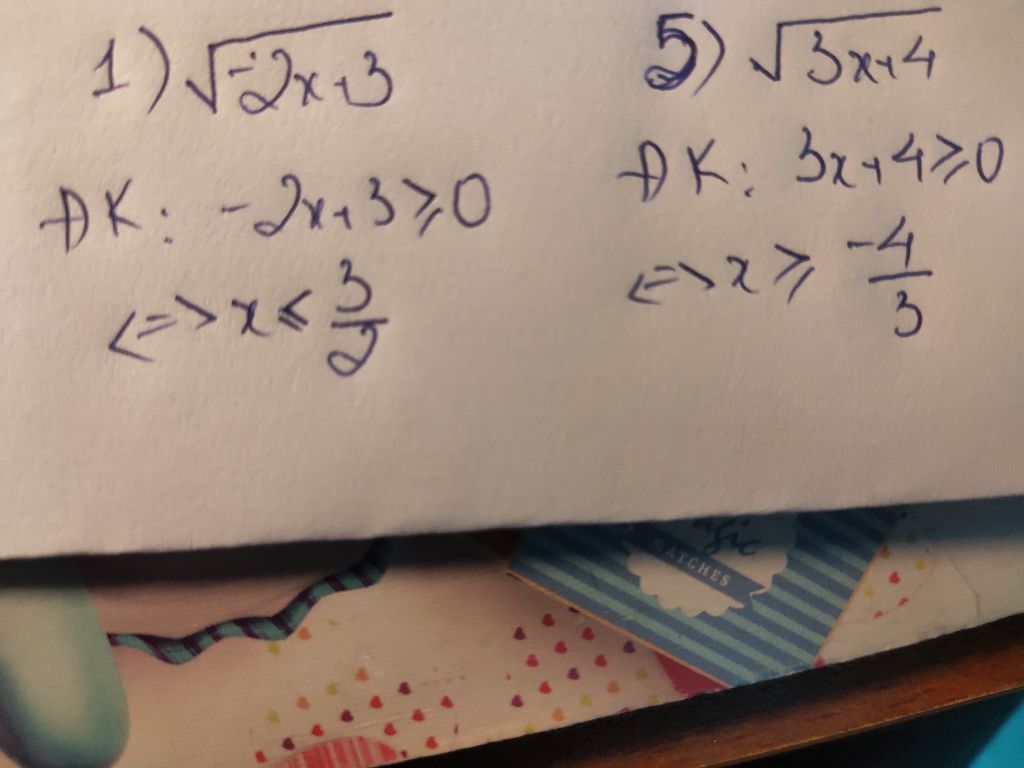 1) √-2x+3
ĐK: -2x+3⩾0
<=> x ⩽ 3/2
5) √3x+4
ĐK: 3x+4⩾0
<=> x ⩾ -4/3
MATCHES